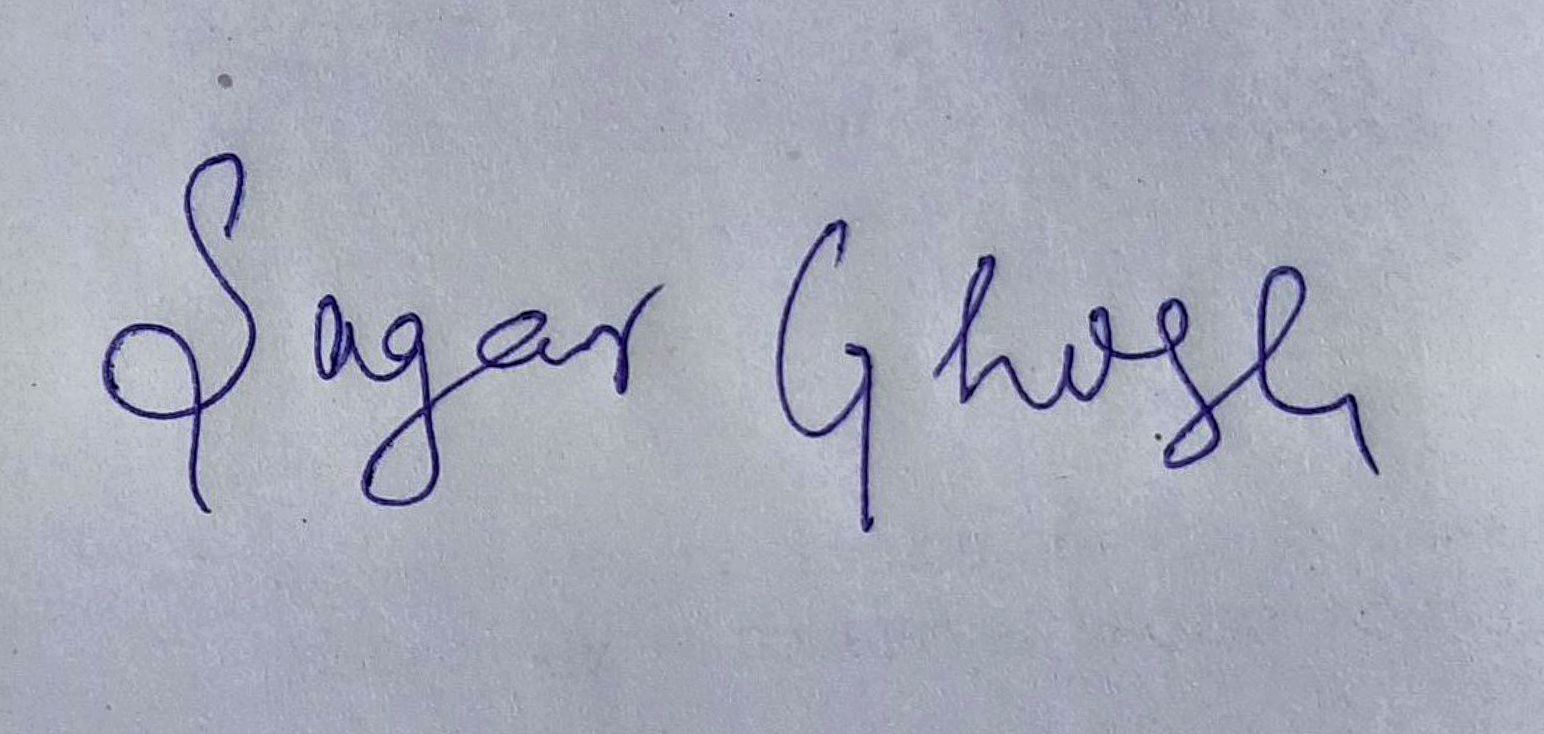 Sagar Ghosh